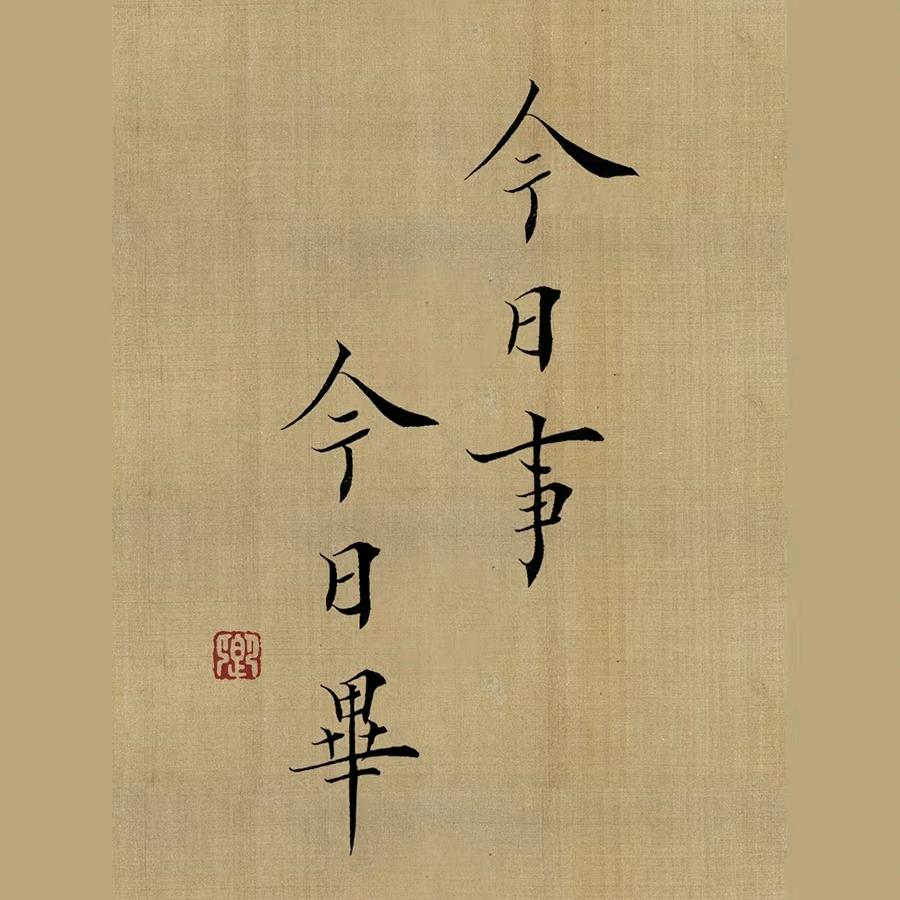 今日事
今日畢